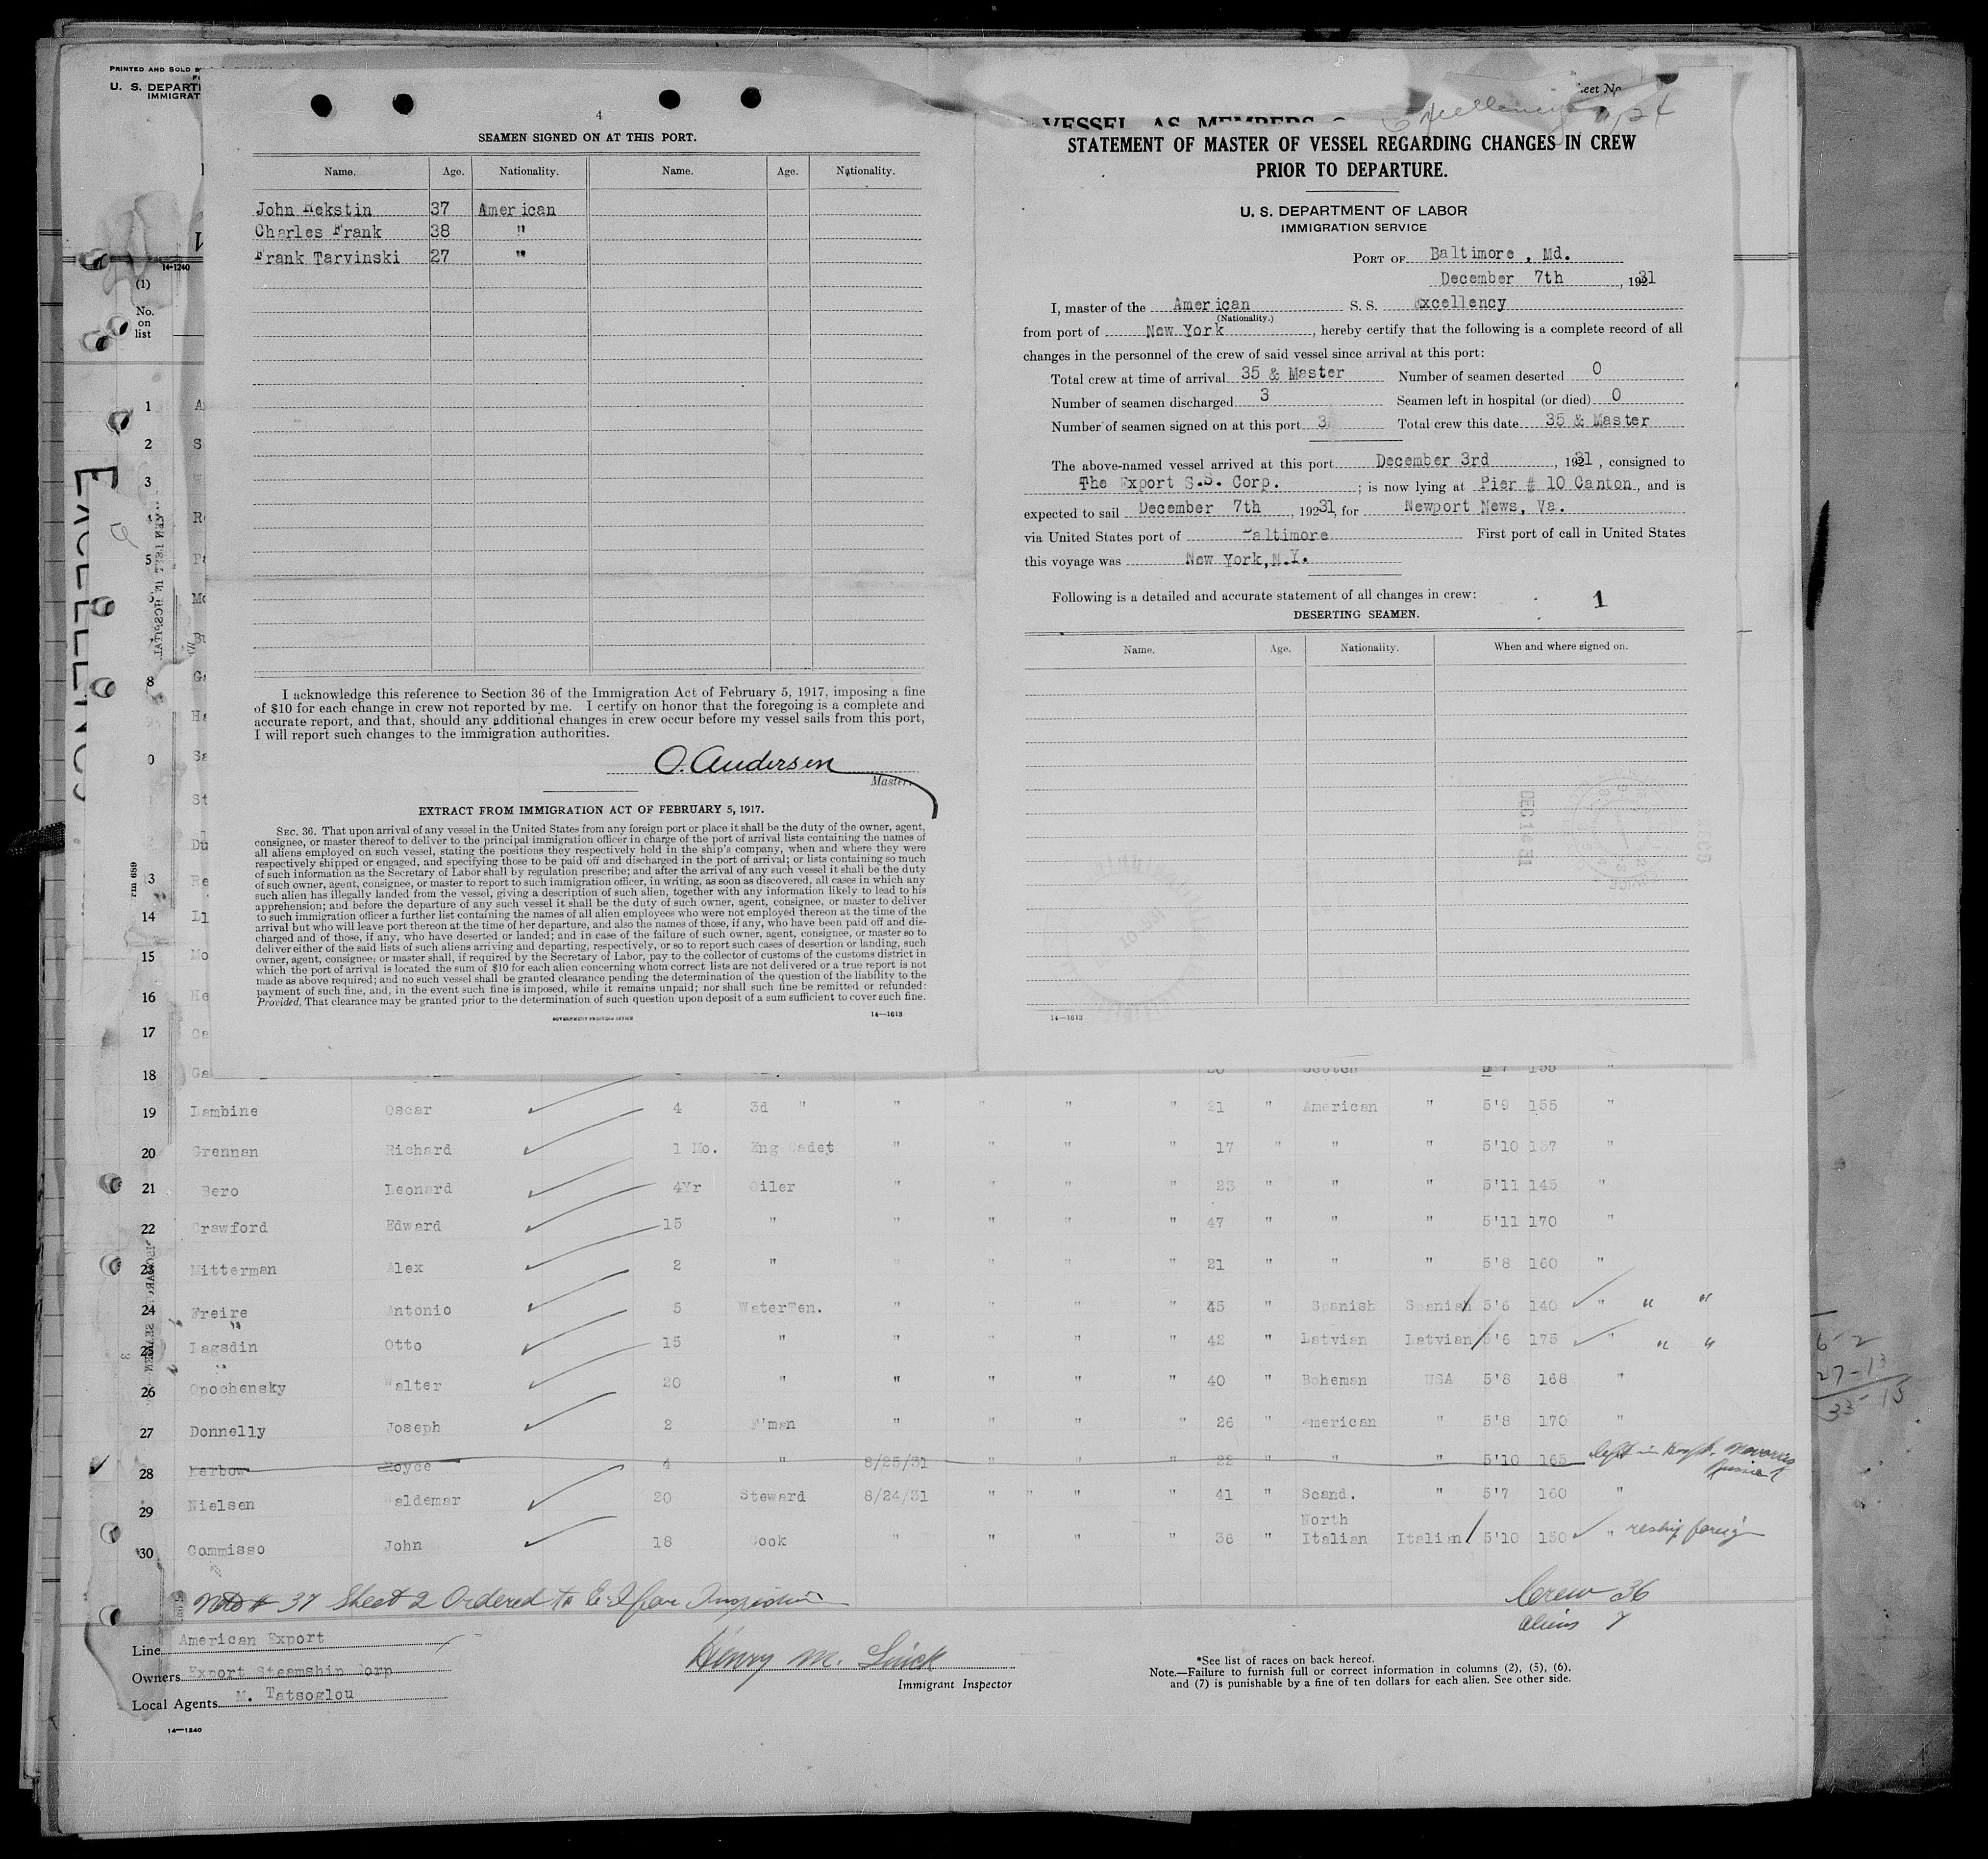 PRINTED AND SOLD B
U. S. DEPARTI
IMMIGRAT
14-1240
(1)
No.
on
list
4
SEAMEN SIGNED ON AT THIS PORT.
Name. Age. Nationality. Name. Age. Nationality.
John Rekstin 37 American
Charles Frank 38 "
Frank Tarvinski 27 "
I acknowledge this reference to Section 36 of the Immigration Act of February 5, 1917, imposing a fine
of $10 for each change in crew not reported by me. I certify on honor that the foregoing is a complete and
accurate report, and that, should any additional changes in crew occur before my vessel sails from this port,
I will report such changes to the immigration authorities.
O. Andersen
Master.
EXTRACT FROM IMMIGRATION ACT OF FEBRUARY 5, 1917.
SEC. 36. That upon arrival of any vessel in the United States from any foreign port or place it shall be the duty of the owner, agent,
consignee, or master thereof to deliver to the principal immigration officer in charge of the port of arrival lists containing the names of
all aliens employed on such vessel, stating the positions they respectively hold in the ship's company, when and where they were
respectively shipped or engaged, and specifying those to be paid off and discharged in the port of arrival; or lists containing so much
of such information as the Secretary of Labor shall by regulation prescribe; and after the arrival of any such vessel it shall be the duty
of such owner, agent, consignee, or master to report to such immigration officer, in writing, as soon as discovered, all cases in which any
such alien has illegally landed from the vessel, giving a description of such alien, together with any information likely to lead to his
apprehension; and before the departure of any such vessel it shall be the duty of such owner, agent, consignee, or master to deliver
to such immigration officer a further list containing the names of all alien employees who were not employed thereon at the time of the
arrival but who will leave port thereon at the time of her departure, and also the names of those, if any, who have been paid off and dis-
charged and of those, if any, who have deserted or landed; and in case of the failure of such owner, agent, consignee, or master so to
deliver either of the said lists of such aliens arriving and departing, respectively, or so to report such cases of desertion or landing, such
owner, agent, consignee, or master shall, if required by the Secretary of Labor, pay to the collector of customs of the customs district in
which the port of arrival is located the sum of $10 for each alien concerning whom correct lists are not delivered or a true report is not
made as above required; and no such vessel shall be granted clearance pending the determination of the question of the liability to the
payment of such fine, and, in the event such fine is imposed, while it remains unpaid; nor shall such fine be remitted or refunded:
Provided, That clearance may be granted prior to the determination of such question upon deposit of a sum sufficient to cover such fine.
GOVERNMENT PRINTING OFFICE 14—1613
eet No
VESSEL AS MEMBERS
STATEMENT OF MASTER OF VESSEL REGARDING CHANGES IN CREW
PRIOR TO DEPARTURE.
U. S. DEPARTMENT OF LABOR
IMMIGRATION SERVICE
PORT OF Baltimore , Md.
December 7th , 19231
I, master of the American S. S. Excellency
(Nationality.)
from port of New York , hereby certify that the following is a complete record of all
changes in the personnel of the crew of said vessel since arrival at this port:
Total crew at time of arrival 35 & Master Number of seamen deserted 0
Number of seamen discharged 3 Seamen left in hospital (or died) 0
Number of seamen signed on at this port 3 Total crew this date 35 & Master
The above-named vessel arrived at this port December 3rd , 19231 , consigned to
The Export S.S. Corp. ; is now lying at Pier # 10 Canton , and is
expected to sail December 7th , 19231, for Newport News, Va.
via United States port of Baltimore First port of call in United States
this voyage was New York, N.Y.
Following is a detailed and accurate statement of all changes in crew: 1
DESERTING SEAMEN.
Name. Age. Nationality. When and where signed on.
DEC 14 31
14—1613
1
2
3
5
8
14
15
16
17
18 Ga
19 Lambine Oscar 4 3d " " " " " 21 " American " 5'9 155 "
20 Grennan Richard 1 Mo. Eng Cadet " " " " 17 " " " 5'10 137 "
21 Bero Leonard 4Yr Oiler " " " " 23 " " " 5'11 145 "
22 Crawford Edward 15 " " " " " 47 " " " 5'11 170 "
23 Mitterman Alex 2 " " " " " 21 " " " 5'8 160 "
24 Freire Antonio 5 WaterTen. " " " " 45 " Spanish Spanish 5'6 140 " " "
25 Lagsdin Otto 15 " " " " " 42 " Latvian Latvian 5'6 175 " " "
26 Opochensky Walter 20 " " " " " 40 " Boheman USA 5'8 168 "
27 Donnelly Joseph 2 F'man " " " " 26 " American " 5'8 170 "
28 Kerbow Royce 4 " 8/25/31 " " " 22 " " " 5'10 165 left in Hosp. Novoross
Russia
29 Nielsen Waldemar 20 Steward 8/24/31 " " " " 41 " Scand. " 5'7 160 "
30 Commisso John 18 Cook " " " " 36 " North Italian Italian 5'10 150 " reship foreign
Note # 37 Sheet 2 Ordered to E.I for Inspection
Crew 36
aliens 7
Line American Export
Owners Export Steamship Corp
Local Agents M. Tatsoglou
Henry M.
Immigrant Inspector
*See list of races on back hereof.
Note.—Failure to furnish full or correct information in columns (2), (5), (6),
and (7) is punishable by a fine of ten dollars for each alien. See other side.
14—1240
6-2
27-13
33-15